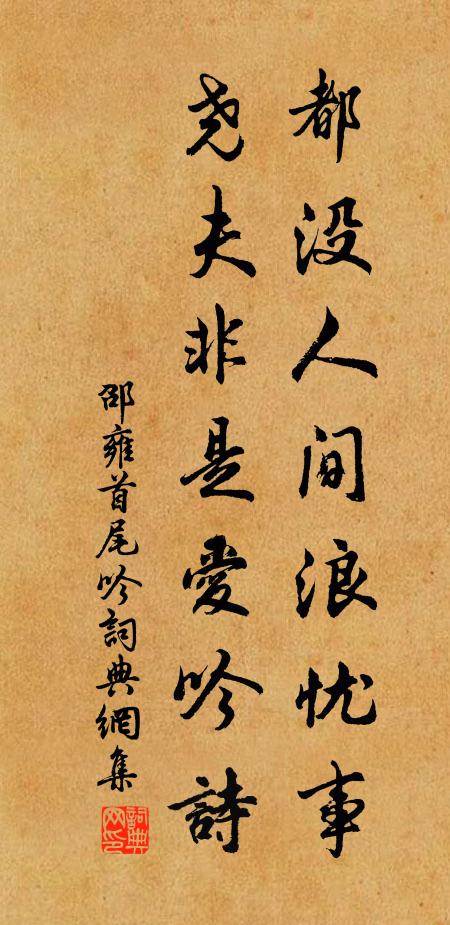 都没人间浪忧事
尧夫非是愛吟詩
邵雍首尾吟詞典網集
詞典网印